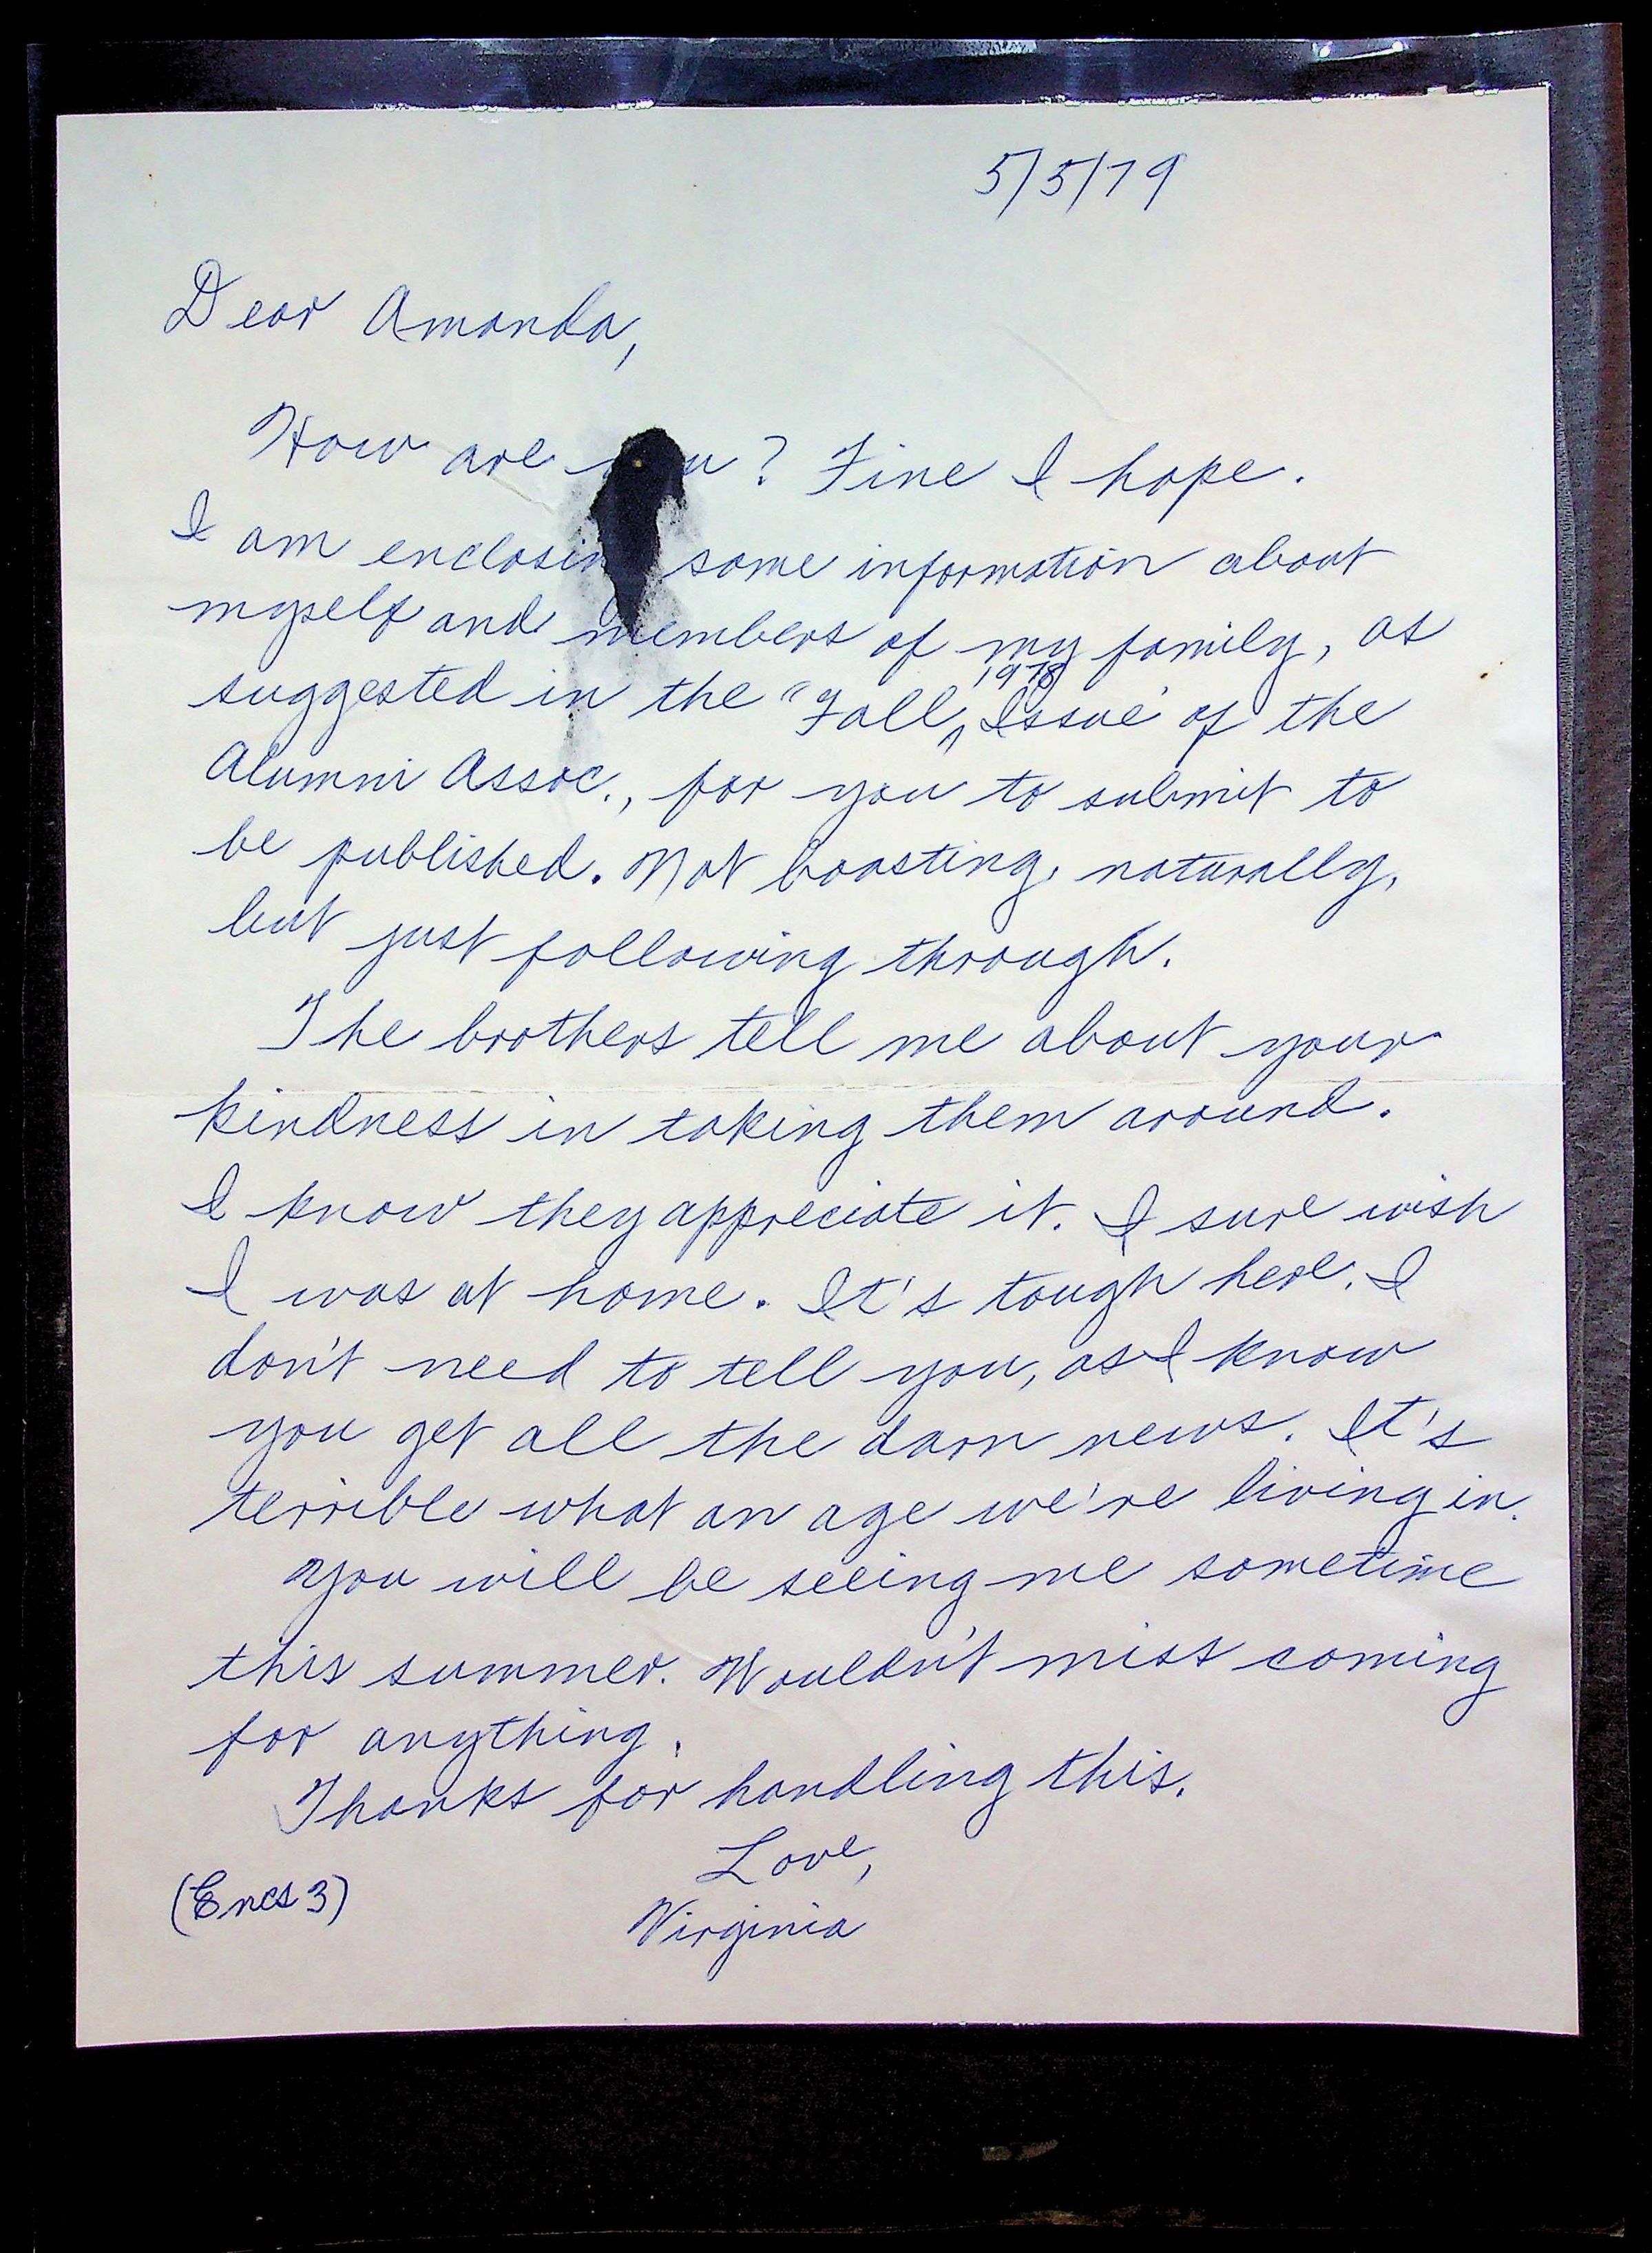 5/5/79
Dear Amanda,
How are you? Fine I hope.
I am enclosing some information about
myself and members of my family, as
suggested in the "Fall, 1978 Issue" of the
Alumni Assoc., for you to submit to
be published. Not boasting, naturally,
but just following through.
The brothers tell me about your
kindness in taking them around.
I know they appreciate it. I sure wish
I was at home. It's tough here. I
don't need to tell you, as I know
you get all the darn news. It's
terrible what an age we're living in.
You will be seeing me sometime
this summer. Wouldn't miss coming
for anything.
Thanks for handling this.
Love,
(Encs 3)
Virginia